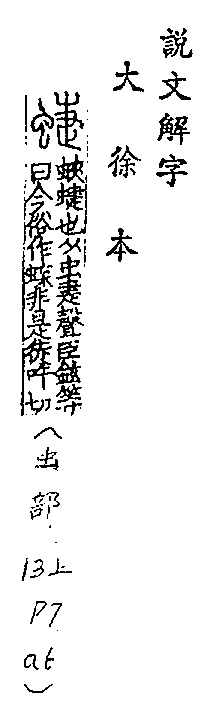 說文解字
大徐本
蜨
蛺蜨也从虫疌聲臣鉉等
曰今俗作蝶非是徒叶切
(虫部.13上 P7.a6)